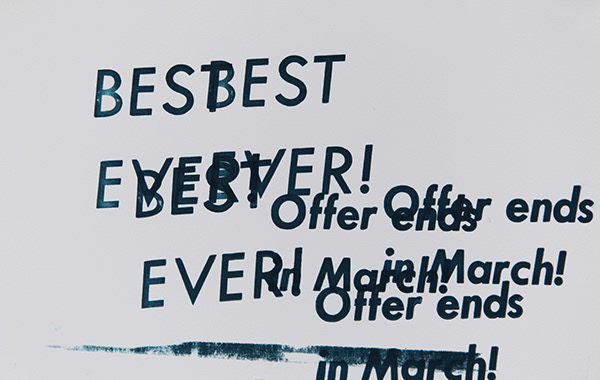 BEST BEST
EVER! EVER!
BEST Offer ends Offer ends
EVER! in March! in March!
Offer ends
in March!